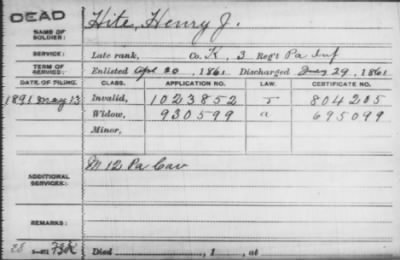 DEAD
NAME OF SOLDIER: Hite, Henry J.
SERVICE: Late rank, Co. K, 3 Reg't Pa Inf
TERM OF SERVICE: Enlisted Apl 20, 1861 Discharged July 29, 1861
DATE OF FILING. CLASS. APPLICATION NO. LAW. CERTIFICATE NO.
1891 May 13 Invalid, 1023852 J 804205
Widow, 930599 a 695099
Minor,
ADDITIONAL SERVICES: M 12 Pa Cav
REMARKS:
Died , 1 , at